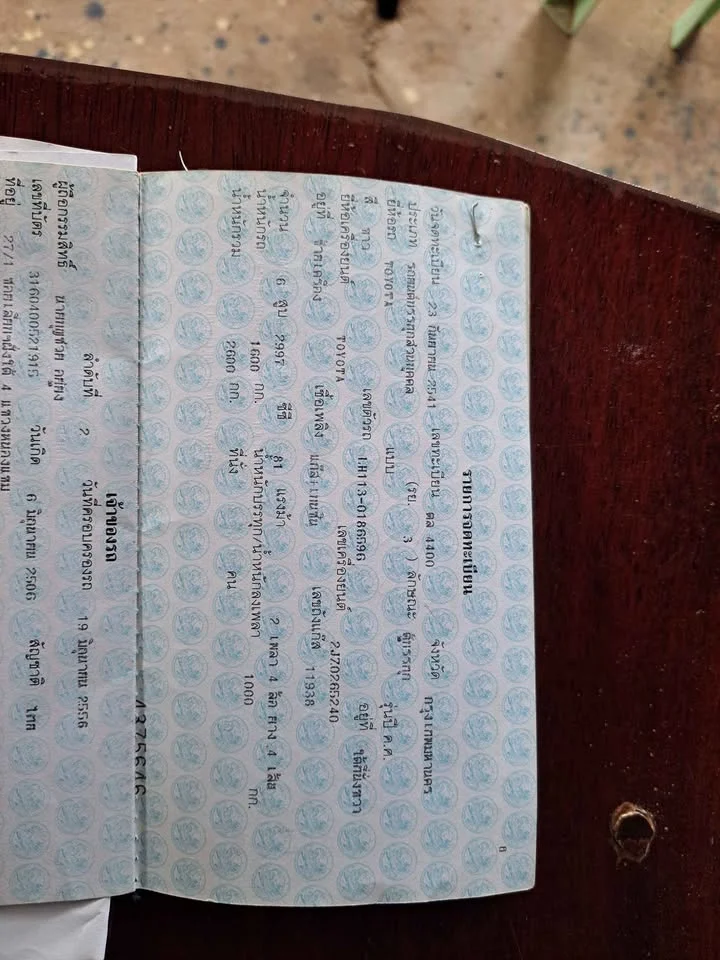 รายการจดทะเบียน
วันจดทะเบียน 23 กันยายน 2541 เลขทะเบียน ตล 4400 จังหวัด กรุงเทพมหานคร
ประเภท รถยนต์บรรทุกส่วนบุคคล (รย. 3 ) ลักษณะ ตู้บรรทุก
ยี่ห้อรถ TOYOTA แบบ รุ่นปี ค.ศ.
สี ขาว เลขตัวรถ LH113-0186596 อยู่ที่ ใต้ที่นั่งขวา
ยี่ห้อเครื่องยนต์ TOYOTA เลขเครื่องยนต์ 2JZ0265240
อยู่ที่ ข้างเครื่อง เชื้อเพลิง แก๊ส/เบนซิน เลขถังแก๊ส 11938
จำนวน 6 สูบ 2997 ซีซี 81 แรงม้า 2 เพลา 4 ล้อ ยาง 4 เส้น
น้ำหนักรถ 1600 กก. น้ำหนักบรรทุก/น้ำหนักลงเพลา 1000 กก.
น้ำหนักรวม 2600 กก. ที่นั่ง คน
4375646
เจ้าของรถ
ลำดับที่ 2 วันที่ครอบครองรถ 19 มิถุนายน 2556
ผู้ถือกรรมสิทธิ์
เลขที่บัตร 3160400521915 วันเกิด 6 มิถุนายน 2506 สัญชาติ ไทย
ที่อยู่ 27/1 4